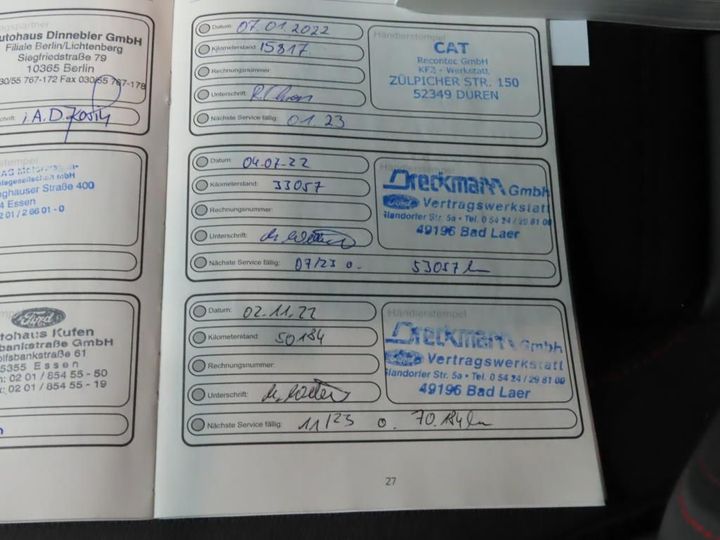 utohaus Dinnebier GmbH
Filiale Berlin/Lichtenberg
Siegfriedstraße 79
10365 Berlin
30/55 767-172 Fax 030/55 767-178
i.A.
nghauser Straße 400
4 Essen
2 01 / 2 66 01 - 0
Ford
tohaus Kufen
bankstraße GmbH
olfsbankstraße 61
5355 Essen
n: 02 01 / 854 55 - 50
x: 02 01 / 854 55 - 19
Datum: 07.01.2022
Kilometerstand: 15817
Rechnungsnummer:
Unterschrift:
Nächste Service fällig: 01.23
Händlerstempel
CAT
Recontec GmbH
KFZ - Werkstatt
ZÜLPICHER STR. 150
52349 DÜREN
Datum: 04.07.22
Kilometerstand: 33057
Rechnungsnummer:
Unterschrift:
Nächste Service fällig: 07/23 o. 53057 km
Händlerstempel
Dreckmann GmbH
Ford Vertragswerkstatt
Glandorfer Str. 5a • Tel. 0 54 24 / 29 81 09
49196 Bad Laer
Datum: 02.11.22
Kilometerstand: 50184
Rechnungsnummer:
Unterschrift:
Nächste Service fällig: 11/23 o. 70.184 km
Händlerstempel
Dreckmann GmbH
Ford Vertragswerkstatt
Glandorfer Str. 5a • Tel. 0 54 24 / 29 81 09
49196 Bad Laer
27